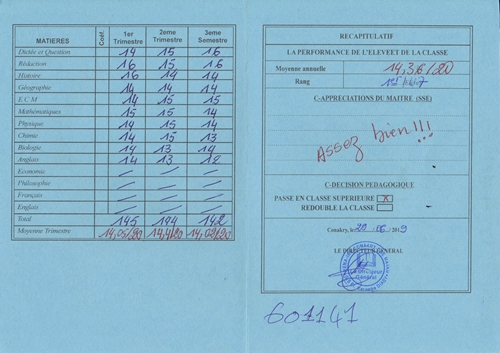 MATIERES Coéf. 1er Trimestre 2eme Trimestre 3eme Semestre
Dictée et Question 14 15 16
Rédaction 16 15 15
Histoire 16 14 14
Géographie 14 14 14
E C M 14 15 15
Mathématiques 15 14
Physique 14 15 14
Chimie 14 15 13
Biologie 14 13 14
Anglais 14 13 12
Economie
Philosophie
Français
Englais
Total 145 144 142
Moyenne Trimestre
RECAPITULATIF
LA PERFORMANCE DE L'ELEVEET DE LA CLASSE
Moyenne annuelle 14,36/20
Rang
C-APPRECIATIONS DU MAITRE (SSE)
Assez bien!!!
C-DECISION PEDAGOGIQUE
PASSE EN CLASSE SUPERIEURE X
REDOUBLE LA CLASSE
Conakry, le 20 06 2019
LE DIRECTEUR GENERAL
Le Directeur
Général
601141